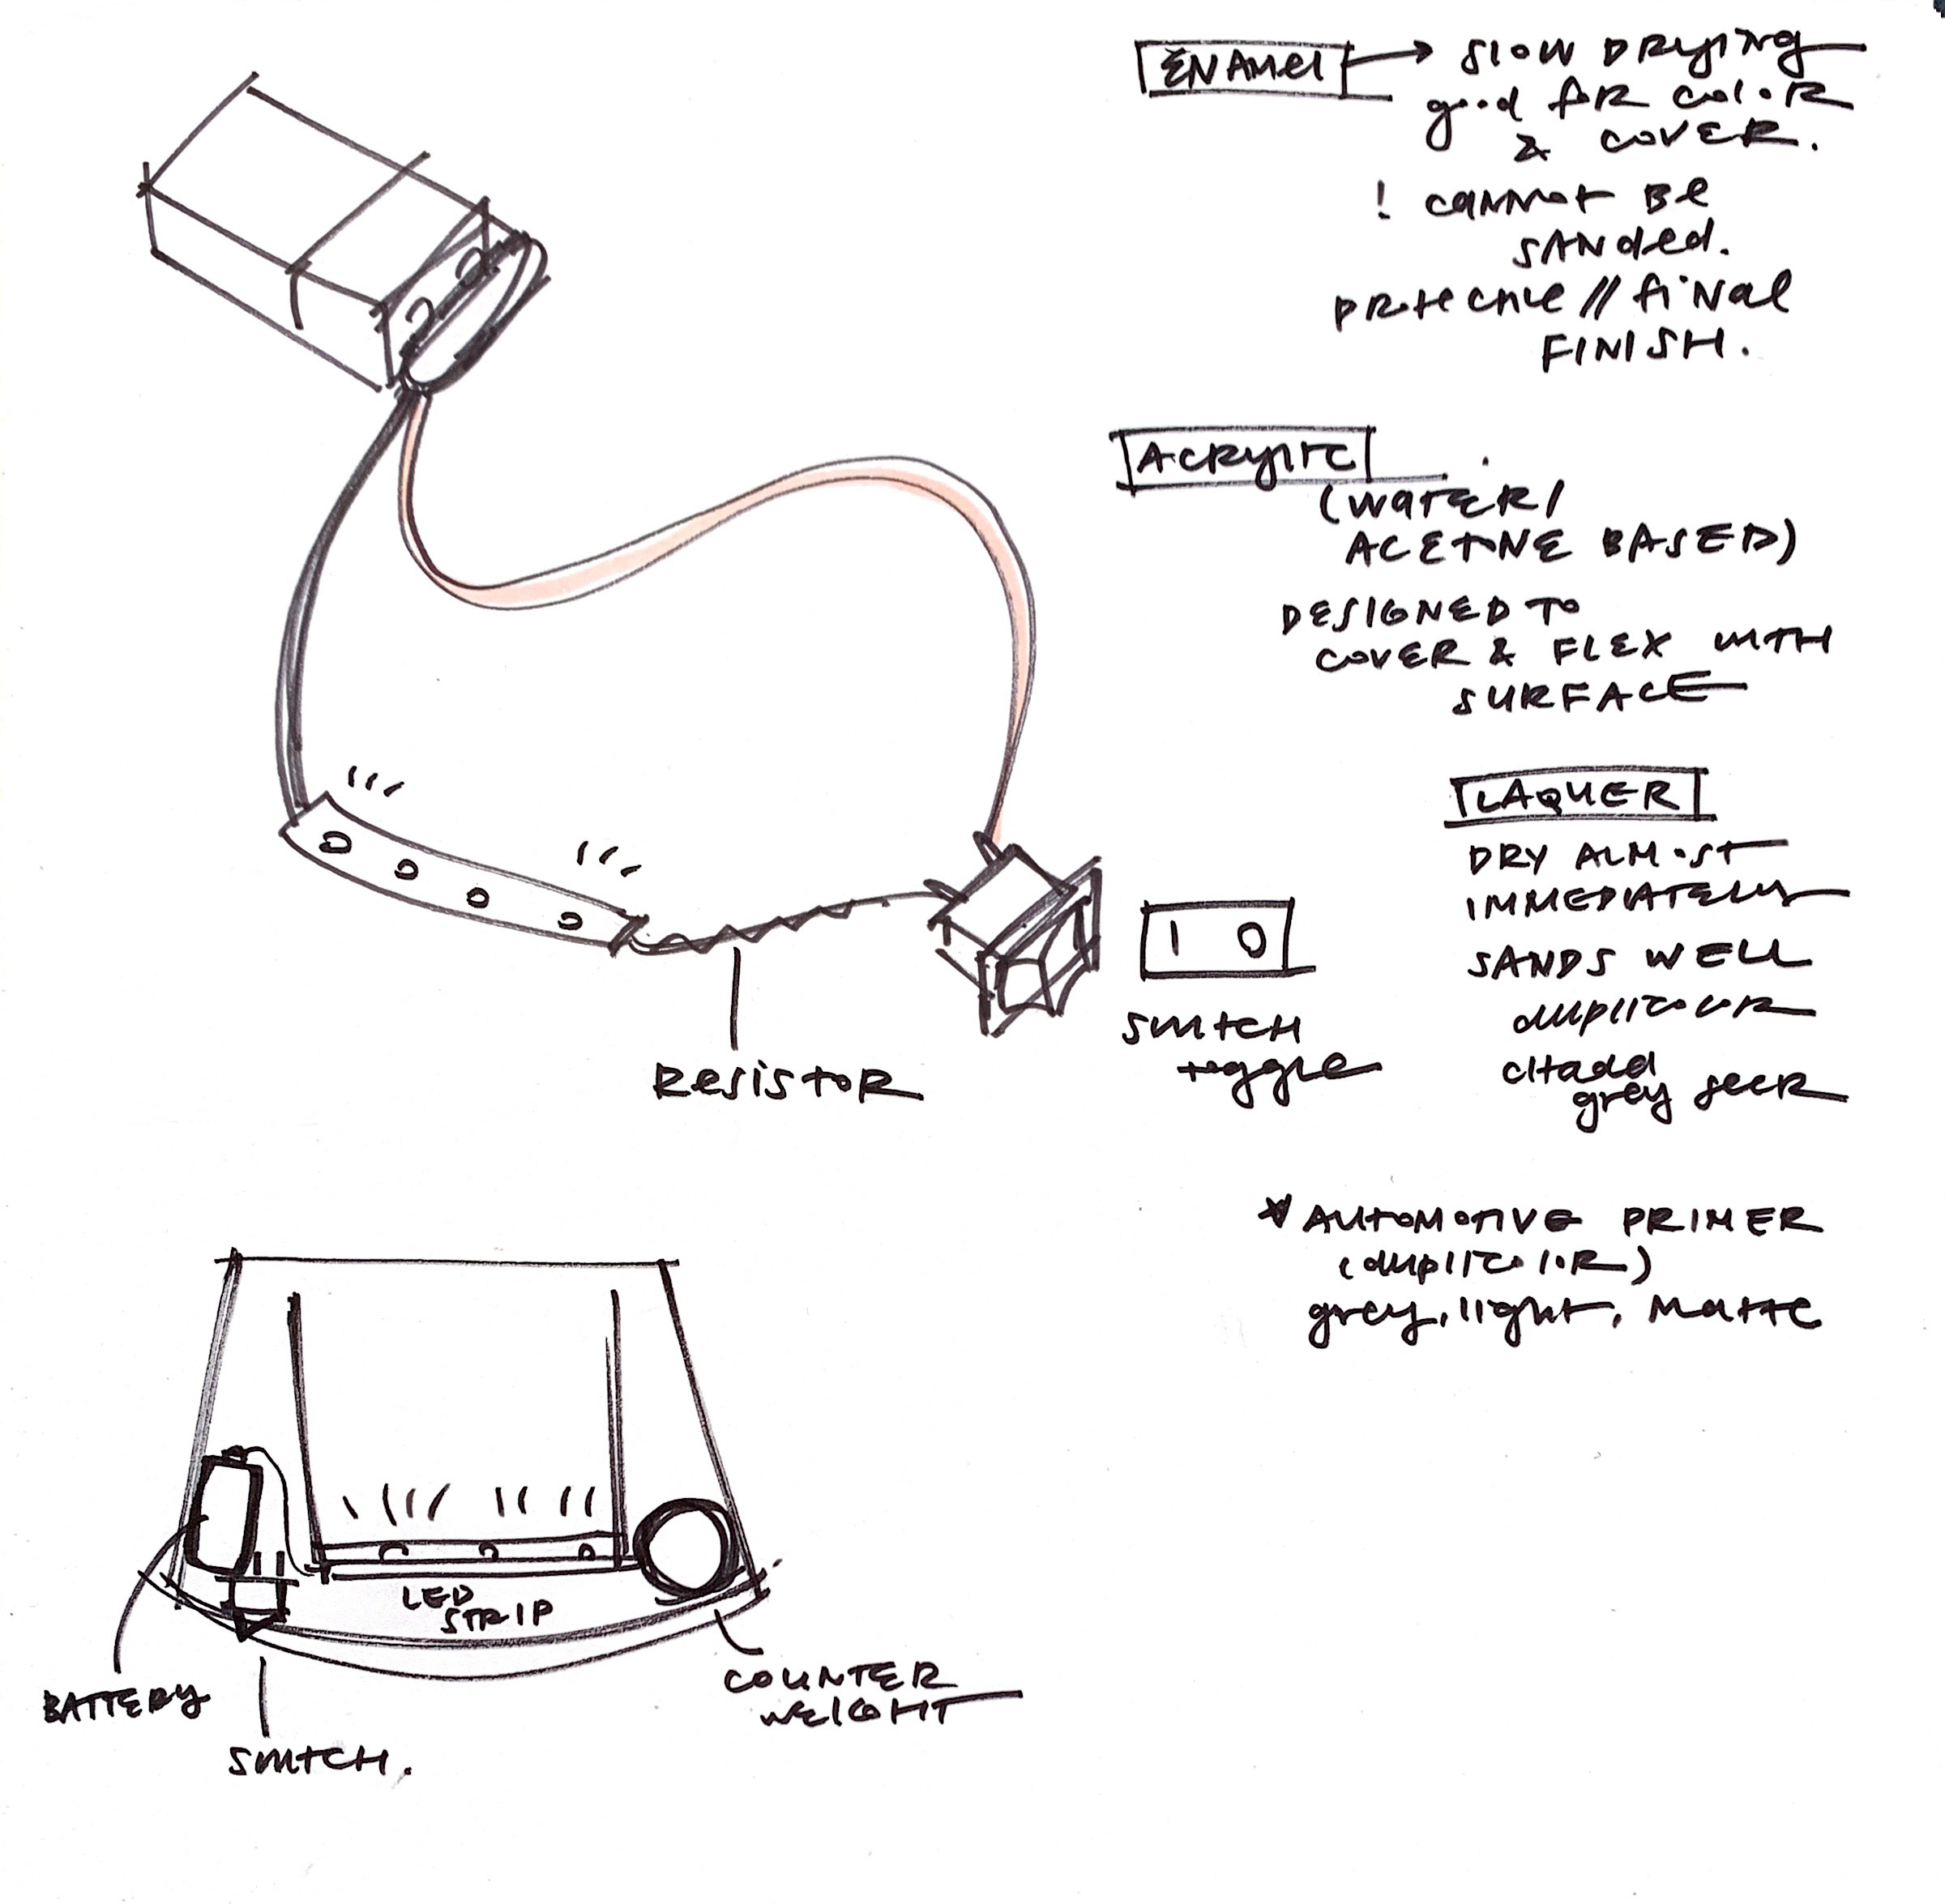 ENAMEL → SLOW DRYING
good for color
& cover.
! cannot be
sanded.
protective // final
FINISH.
ACRYLIC
(WATER/
ACETONE BASED)
DESIGNED TO
COVER & FLEX WITH
SURFACE
LAQUER
DRY ALMOST
IMMEDIATELY
SANDS WELL
duplicolor
citadel
grey seer
1 0
switch
toggle
Resistor
* AUTOMOTIVE PRIMER
(duplicolor)
grey, light, matte
LED
STRIP
BATTERY
SWITCH.
COUNTER
WEIGHT